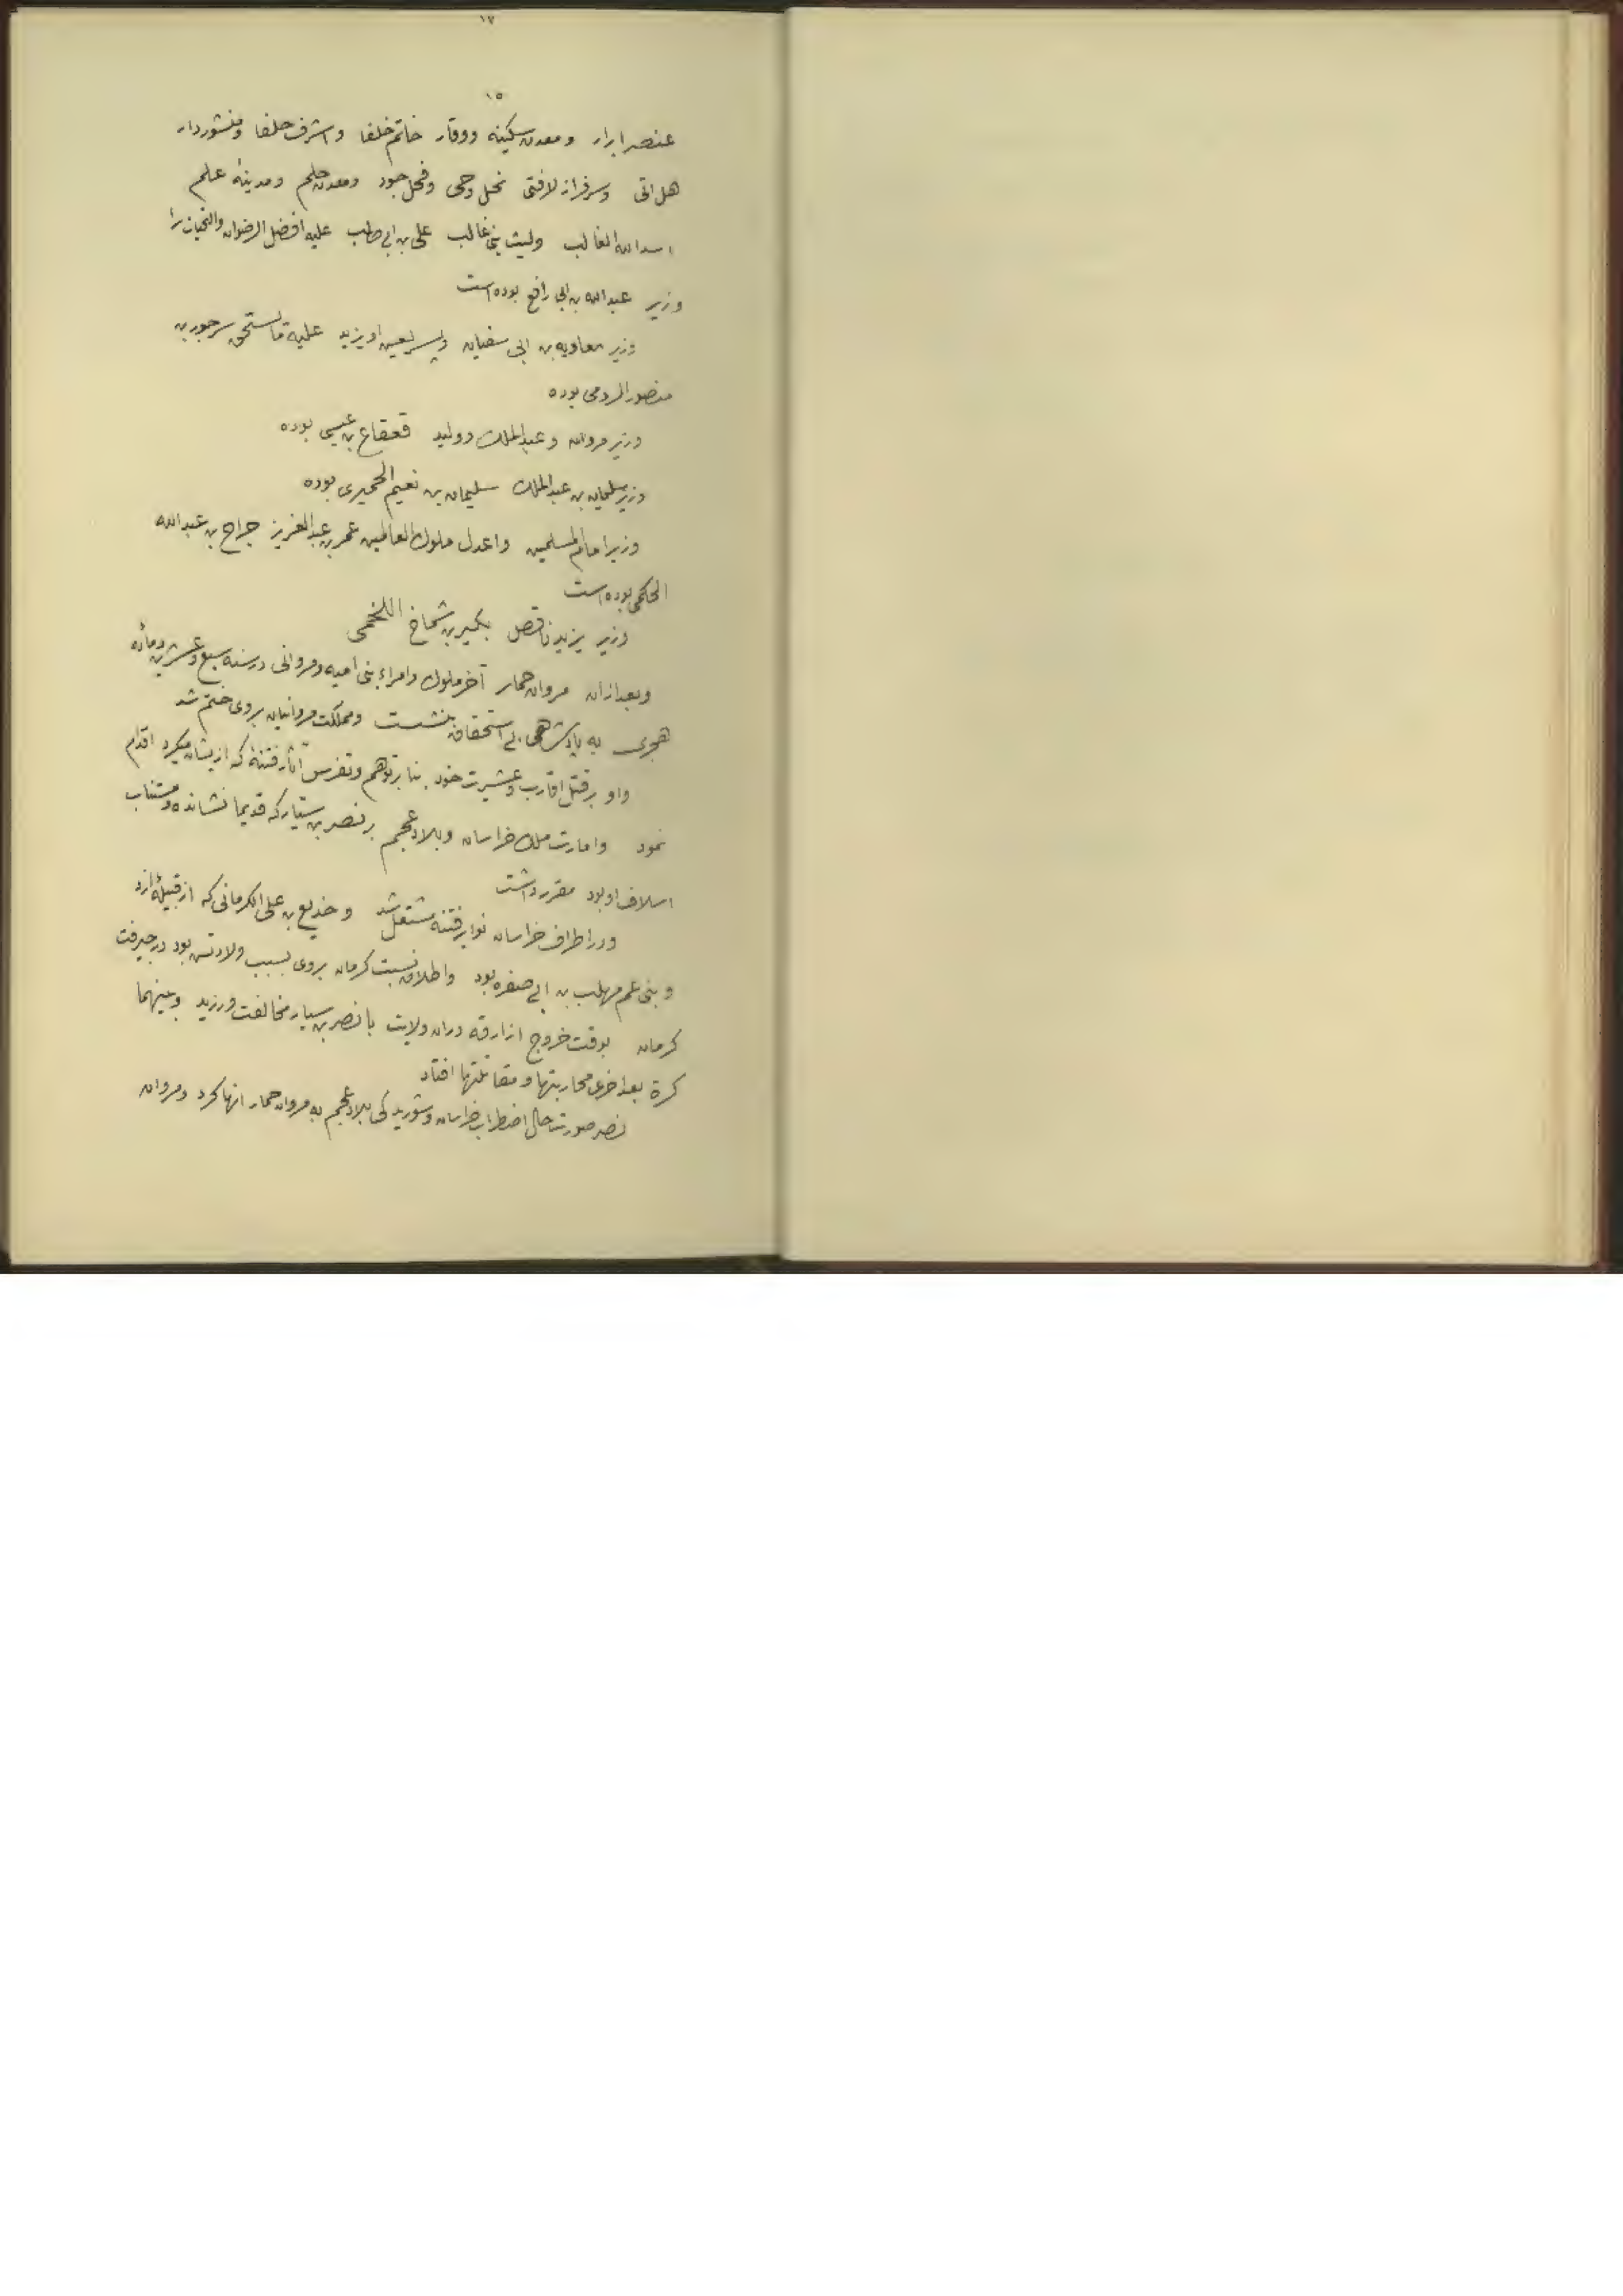 ۱۷
۱۵
عنصر ابرار ومعدن سکینه ووقار خاتم خلفا واشرف حلفا ومنشوردار
هل اتی وسرفراز لافتی نحل وحی وفحل جود ومعدن حلم ومدینهٔ علم
اسد الله الغالب ولیث بنی غالب علی بن ابی طالب علیه افضل الرضوان والتحیات را
وزیر عبدالله بن ابی رافع بوده است
وزیر معاویه بن ابی سفیان وپسر لعین او یزید علیه مایستحق سرجون بن
منصور الرومی بوده
وزیر مروان وعبدالملک وولید قعقاع بن عیسی بوده
وزیر سلیمان بن عبدالملک سلیمان بن نعیم الحمیری بوده
وزیر امام المسلمین واعدل ملوک العالمین عمر بن عبدالعزیز جراح بن عبدالله
الحکمی بوده است
وزیر یزید ناقص بکیر بن شماخ اللخمی
وبعد ازان مروان حمار آخر ملوک وامراء بنی امیه ومروانی در سنه سبع وعشرین ومائه
هجری به پادشاهی بی استحقاق بنشست ومملکت مروانیان بروی ختم شد
واو بر قتل اقارب وعشیرت خود بنا بر توهم وتفرس آثار فتنهٔ که از یشان میکرد اقدام
نمود وامارت ملک خراسان وبلاد عجم بر نصر بن سیّار که قدیما نشانده ومستناب
اسلاف او بود مقرر داشت
ودر اطراف خراسان نوایر فتنه مشتعل شد وخدیع بن علی الکرمانی که از قبیلهٔ ازد
وبنی عم مهلب بن ابی صفره بود واطلاق نسبت کرمان بروی بسبب ولادتش بود در جیرفت
کرمان بوقت خروج ازارقه دران ولایت با نصر بن سیار مخالفت ورزید وبینهما
کرة بعد اخری محاربتها ومقاتلتها افتاد
نصر صورت حال اضطراب خراسان وشوریدگی بلاد عجم به مروان حمار انها کرد ومروان